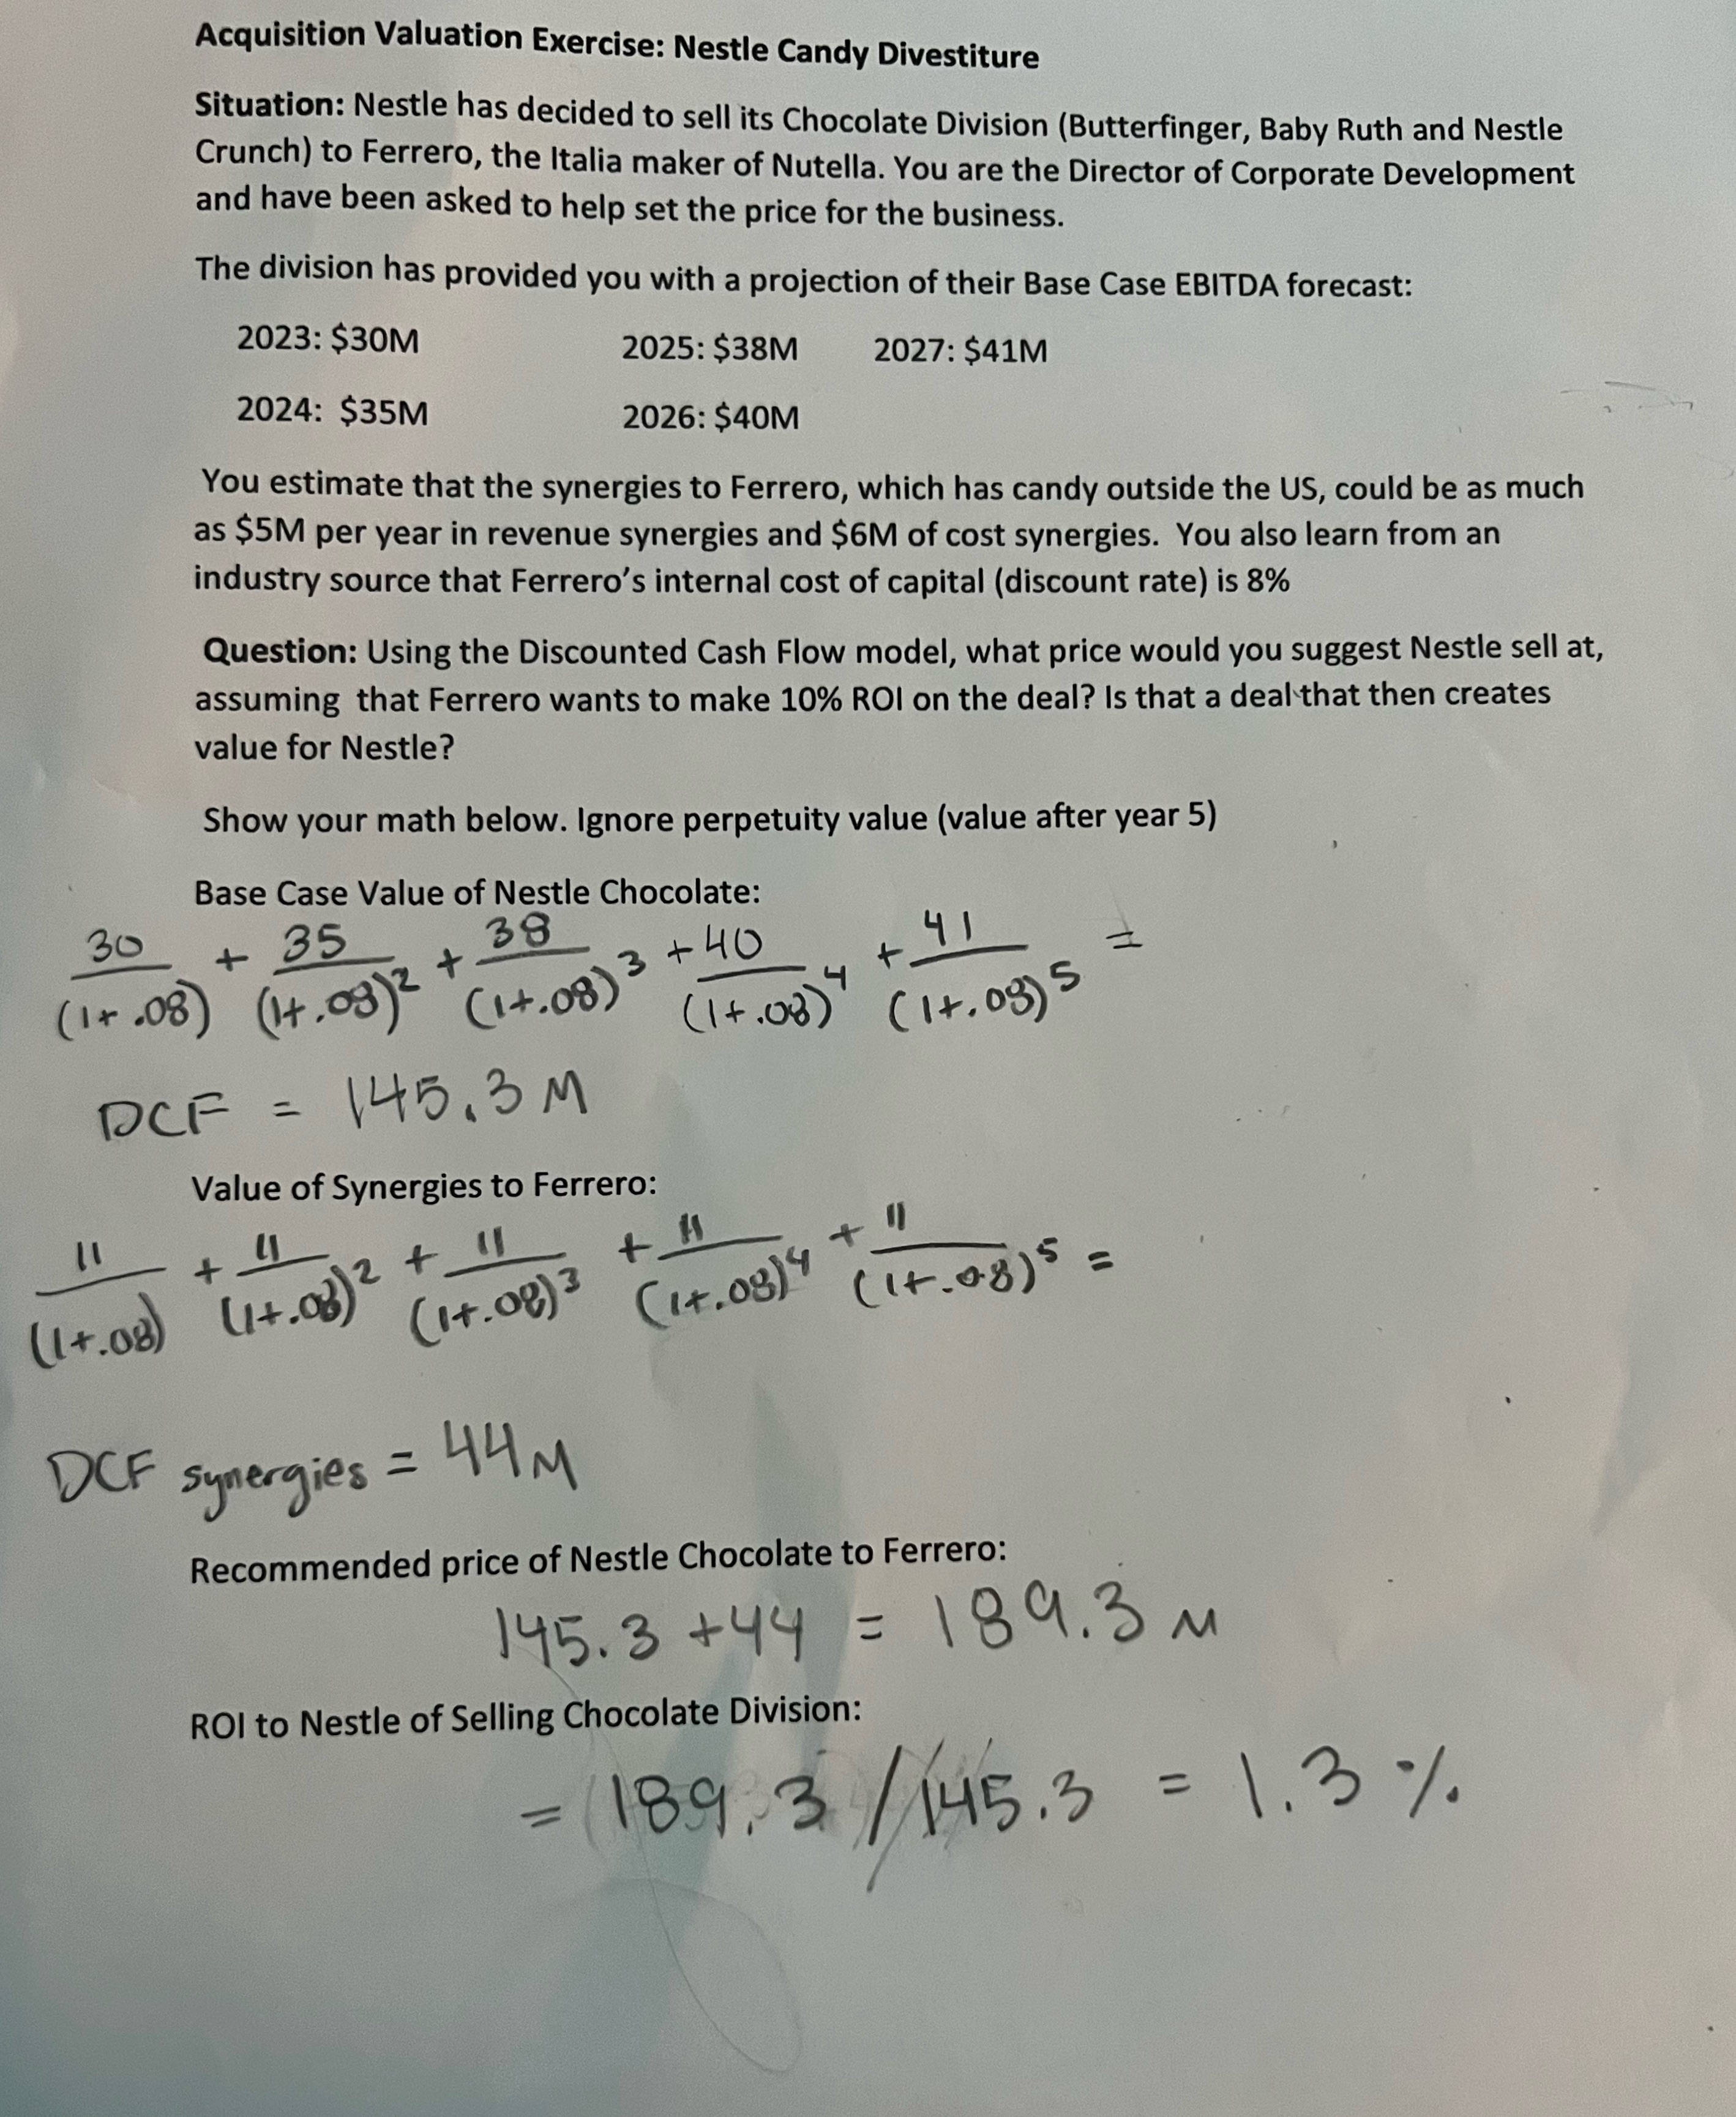 Acquisition Valuation Exercise: Nestle Candy Divestiture
Situation: Nestle has decided to sell its Chocolate Division (Butterfinger, Baby Ruth and Nestle
Crunch) to Ferrero, the Italia maker of Nutella. You are the Director of Corporate Development
and have been asked to help set the price for the business.
The division has provided you with a projection of their Base Case EBITDA forecast:
2023: $30M 2025: $38M 2027: $41M
2024: $35M 2026: $40M
You estimate that the synergies to Ferrero, which has candy outside the US, could be as much
as $5M per year in revenue synergies and $6M of cost synergies. You also learn from an
industry source that Ferrero's internal cost of capital (discount rate) is 8%
Question: Using the Discounted Cash Flow model, what price would you suggest Nestle sell at,
assuming that Ferrero wants to make 10% ROI on the deal? Is that a deal that then creates
value for Nestle?
Show your math below. Ignore perpetuity value (value after year 5)
Base Case Value of Nestle Chocolate:
30 + 35 + 38 + 40 + 41 =
(1+.08) (1+.08)² (1+.08)³ (1+.08)⁴ (1+.08)⁵
DCF = 145.3 M
Value of Synergies to Ferrero:
11 + 11 + 11 + 11 + 11 =
(1+.08) (1+.08)² (1+.08)³ (1+.08)⁴ (1+.08)⁵
DCF synergies = 44M
Recommended price of Nestle Chocolate to Ferrero:
145.3 + 44 = 189.3 M
ROI to Nestle of Selling Chocolate Division:
= 189.3 / 145.3 = 1.3 %